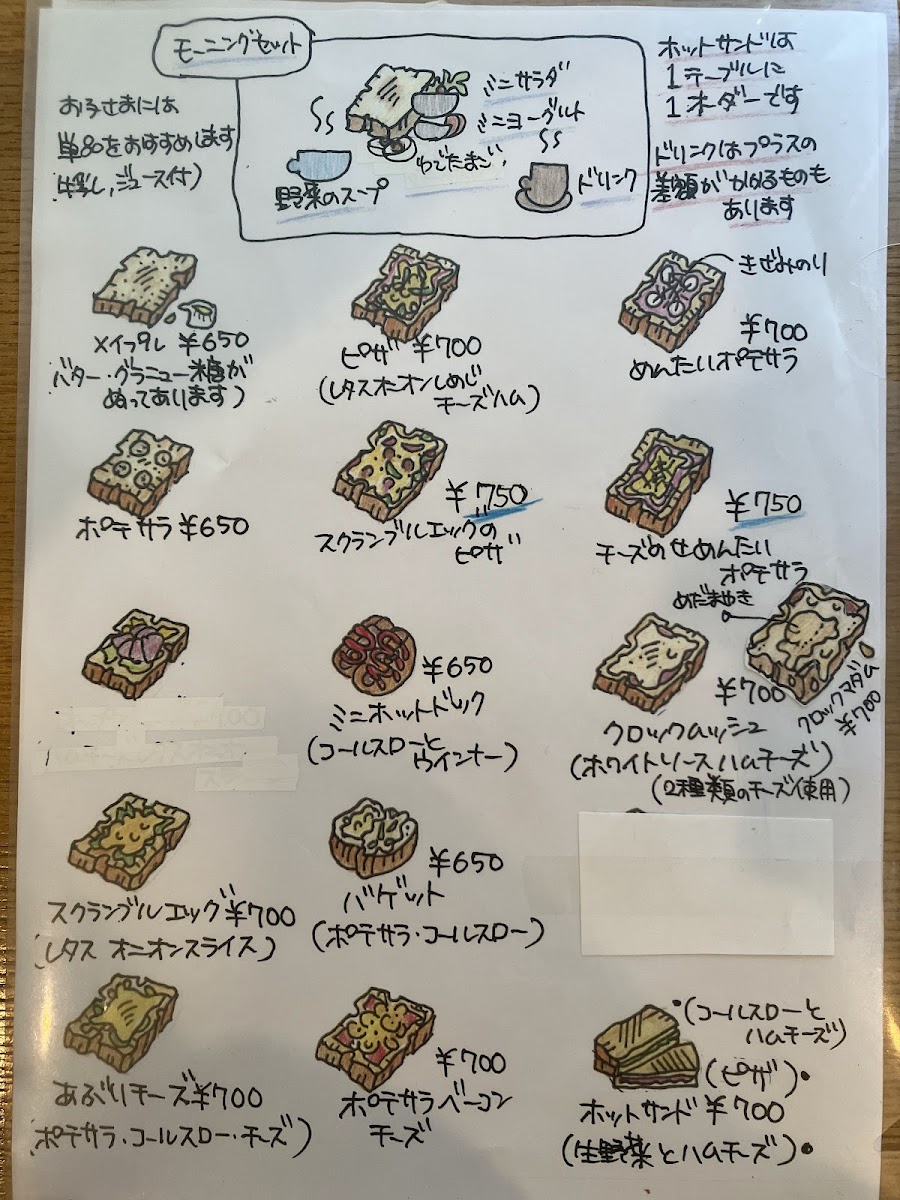 モーニングセット
お子さまには
単品をおすすめします
(牛乳、ジュース付)
ミニサラダ
ミニヨーグルト
ゆでたまご
野菜のスープ
ドリンク
ホットサンドは
1テーブルに
1オーダーです
ドリンクはプラスの
差額がかかるものも
あります
メイプル ¥650
(バター・グラニュー糖が
ぬってあります)
ピザ ¥700
(レタスオニオンしめじ
チーズハム)
きざみのり
¥700
めんたいポテサラ
ポテサラ ¥650
¥750
スクランブルエッグの
ピザ
¥750
チーズのせめんたい
ポテサラ
¥650
ミニホットドック
(コールスローと
ウインナー)
めだまやき
クロックマダム
¥700
¥700
クロックムッシュ
(ホワイトソースハムチーズ)
(2種類のチーズ使用)
スクランブルエッグ ¥700
(レタス オニオンスライス)
¥650
バゲット
(ポテサラ・コールスロー)
あぶりチーズ ¥700
(ポテサラ・コールスロー・チーズ)
¥700
ポテサラベーコン
チーズ
・(コールスローと
ハムチーズ)
(ピザ)・
ホットサンド ¥700
(生野菜とハムチーズ)・